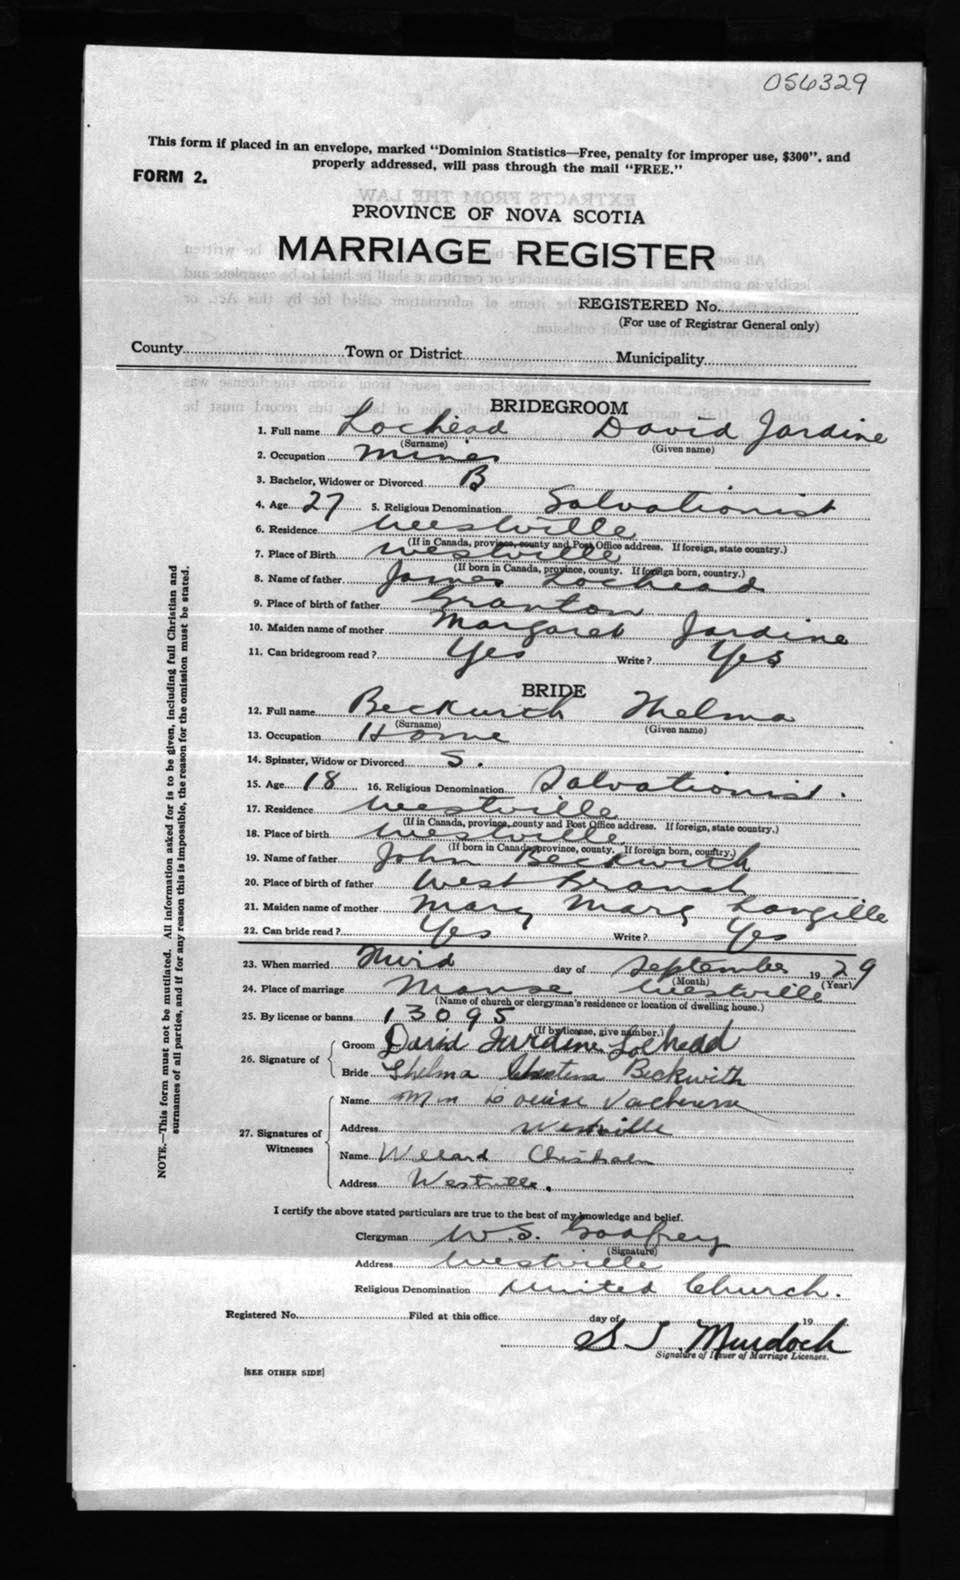 056329
This form if placed in an envelope, marked "Dominion Statistics—Free, penalty for improper use, $300". and
properly addressed, will pass through the mail "FREE."
FORM 2.
PROVINCE OF NOVA SCOTIA
MARRIAGE REGISTER
REGISTERED No.
(For use of Registrar General only)
County Town or District Municipality
BRIDEGROOM
1. Full name Lochead David Jardine
(Surname) (Given name)
2. Occupation Miner
3. Bachelor, Widower or Divorced B
4. Age 27 5. Religious Denomination Salvationist
6. Residence Westville
(If in Canada, province, county and Post Office address. If foreign, state country.)
7. Place of Birth Westville
(If born in Canada, province, county. If foreign born, country.)
8. Name of father James Lochead
9. Place of birth of father Granton
10. Maiden name of mother Margaret Jardine
11. Can bridegroom read? Yes Write? Yes
BRIDE
12. Full name Beckwith Thelma
(Surname) (Given name)
13. Occupation Home
14. Spinster, Widow or Divorced S.
15. Age 18 16. Religious Denomination Salvationist.
17. Residence Westville
(If in Canada, province, county and Post Office address. If foreign, state country.)
18. Place of birth Westville
(If born in Canada, province, county. If foreign born, country.)
19. Name of father John Beckwith
20. Place of birth of father West Branch
21. Maiden name of mother Mary Marg Langille
22. Can bride read? Yes Write? Yes
23. When married Third day of September 1929
(Month) (Year)
24. Place of marriage Manse Westville
(Name of church or clergyman's residence or location of dwelling house.)
25. By license or banns 13095
(If by license, give number.)
26. Signature of Groom David Jardine Lochead
Bride Thelma Beckwith
27. Signatures of Witnesses Name Louise
Address Westville
Name Willard Chisholm
Address Westville.
I certify the above stated particulars are true to the best of my knowledge and belief.
Clergyman W. S. Godfrey
(Signature)
Address Westville
Religious Denomination United Church.
Registered No. Filed at this office day of 19
Murdoch
Signature of Issuer of Marriage Licenses.
[SEE OTHER SIDE]
NOTE.—This form must not be mutilated. All information asked for is to be given, including full Christian and
surnames of all parties, and if for any reason this is impossible, the reason for the omission must be stated.